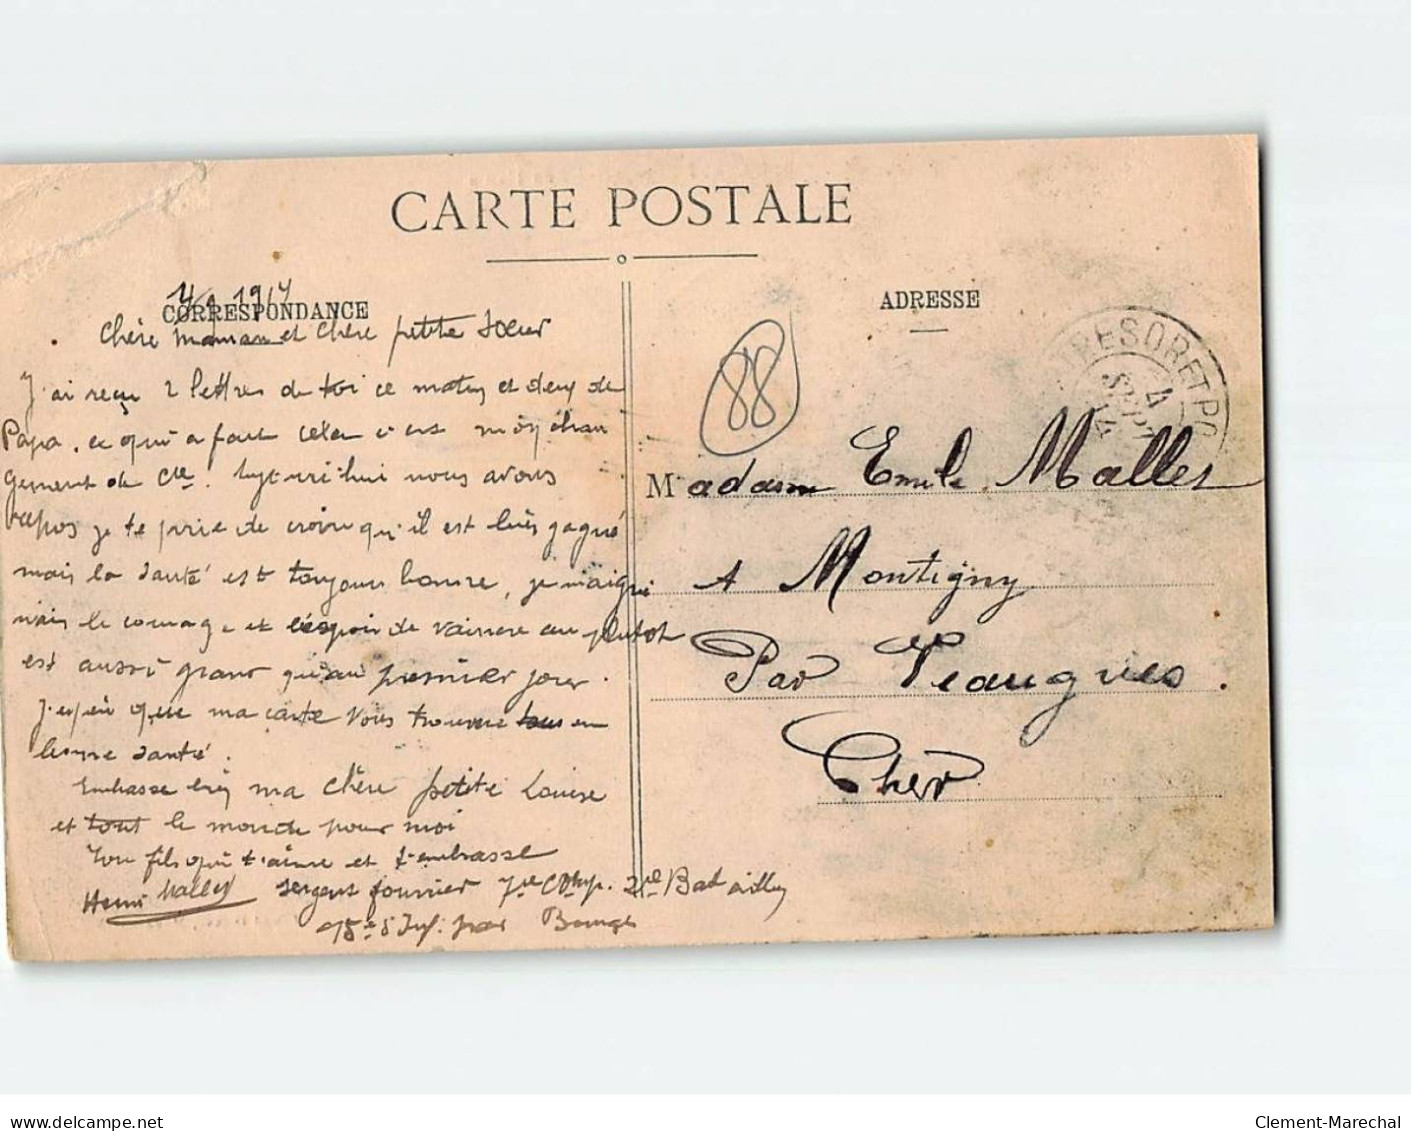 CARTE POSTALE
CORRESPONDANCE
ADRESSE
4/9 1914
Chère maman et chère petite soeur
J'ai reçu 2 lettres de toi ce matin et deux de
Papa. ce qui a fait cela c'est mon chan
gement de Cie. Aujourd'hui nous avons
repos je te prie de croire qu'il est bien gagné
mais la santé est toujours bonne, je maigri
mais le courage et l'espoir de vaincre au plutot
est aussi grand qu'au premier jour.
J'espère que ma carte vous trouvera tous en
bonne santé.
Embrasse bien ma chère petite Louise
et tout le monde pour moi
Ton fils qui t'aime et t'embrasse
Henri Mallet sergent fourrier 7e Comp. 2e Bataillon
95e d'Inf. par Bourges
88
TRESOR ET PO
4
SEPT
14
Madame Emile Mallet
A Montigny
Par Veaugues.
Cher
delcampe.net
Clement-Marechal